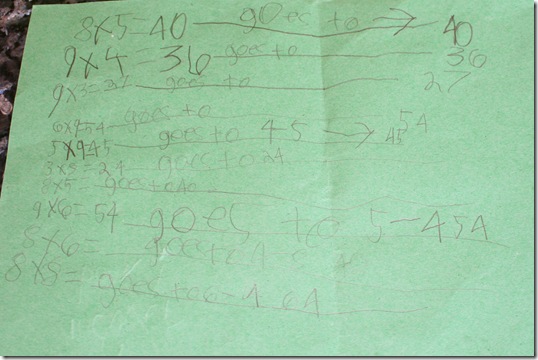 8x5=40 goes to → 40
9x4=36 goes to 36
9x3=27 goes to 27
6x9=54 goes to 54
5x9=45 goes to 45 → 45
goes to 24
8x5= goes to 40
9x6=54 goes to 5-454
8x6= goes to
goes to